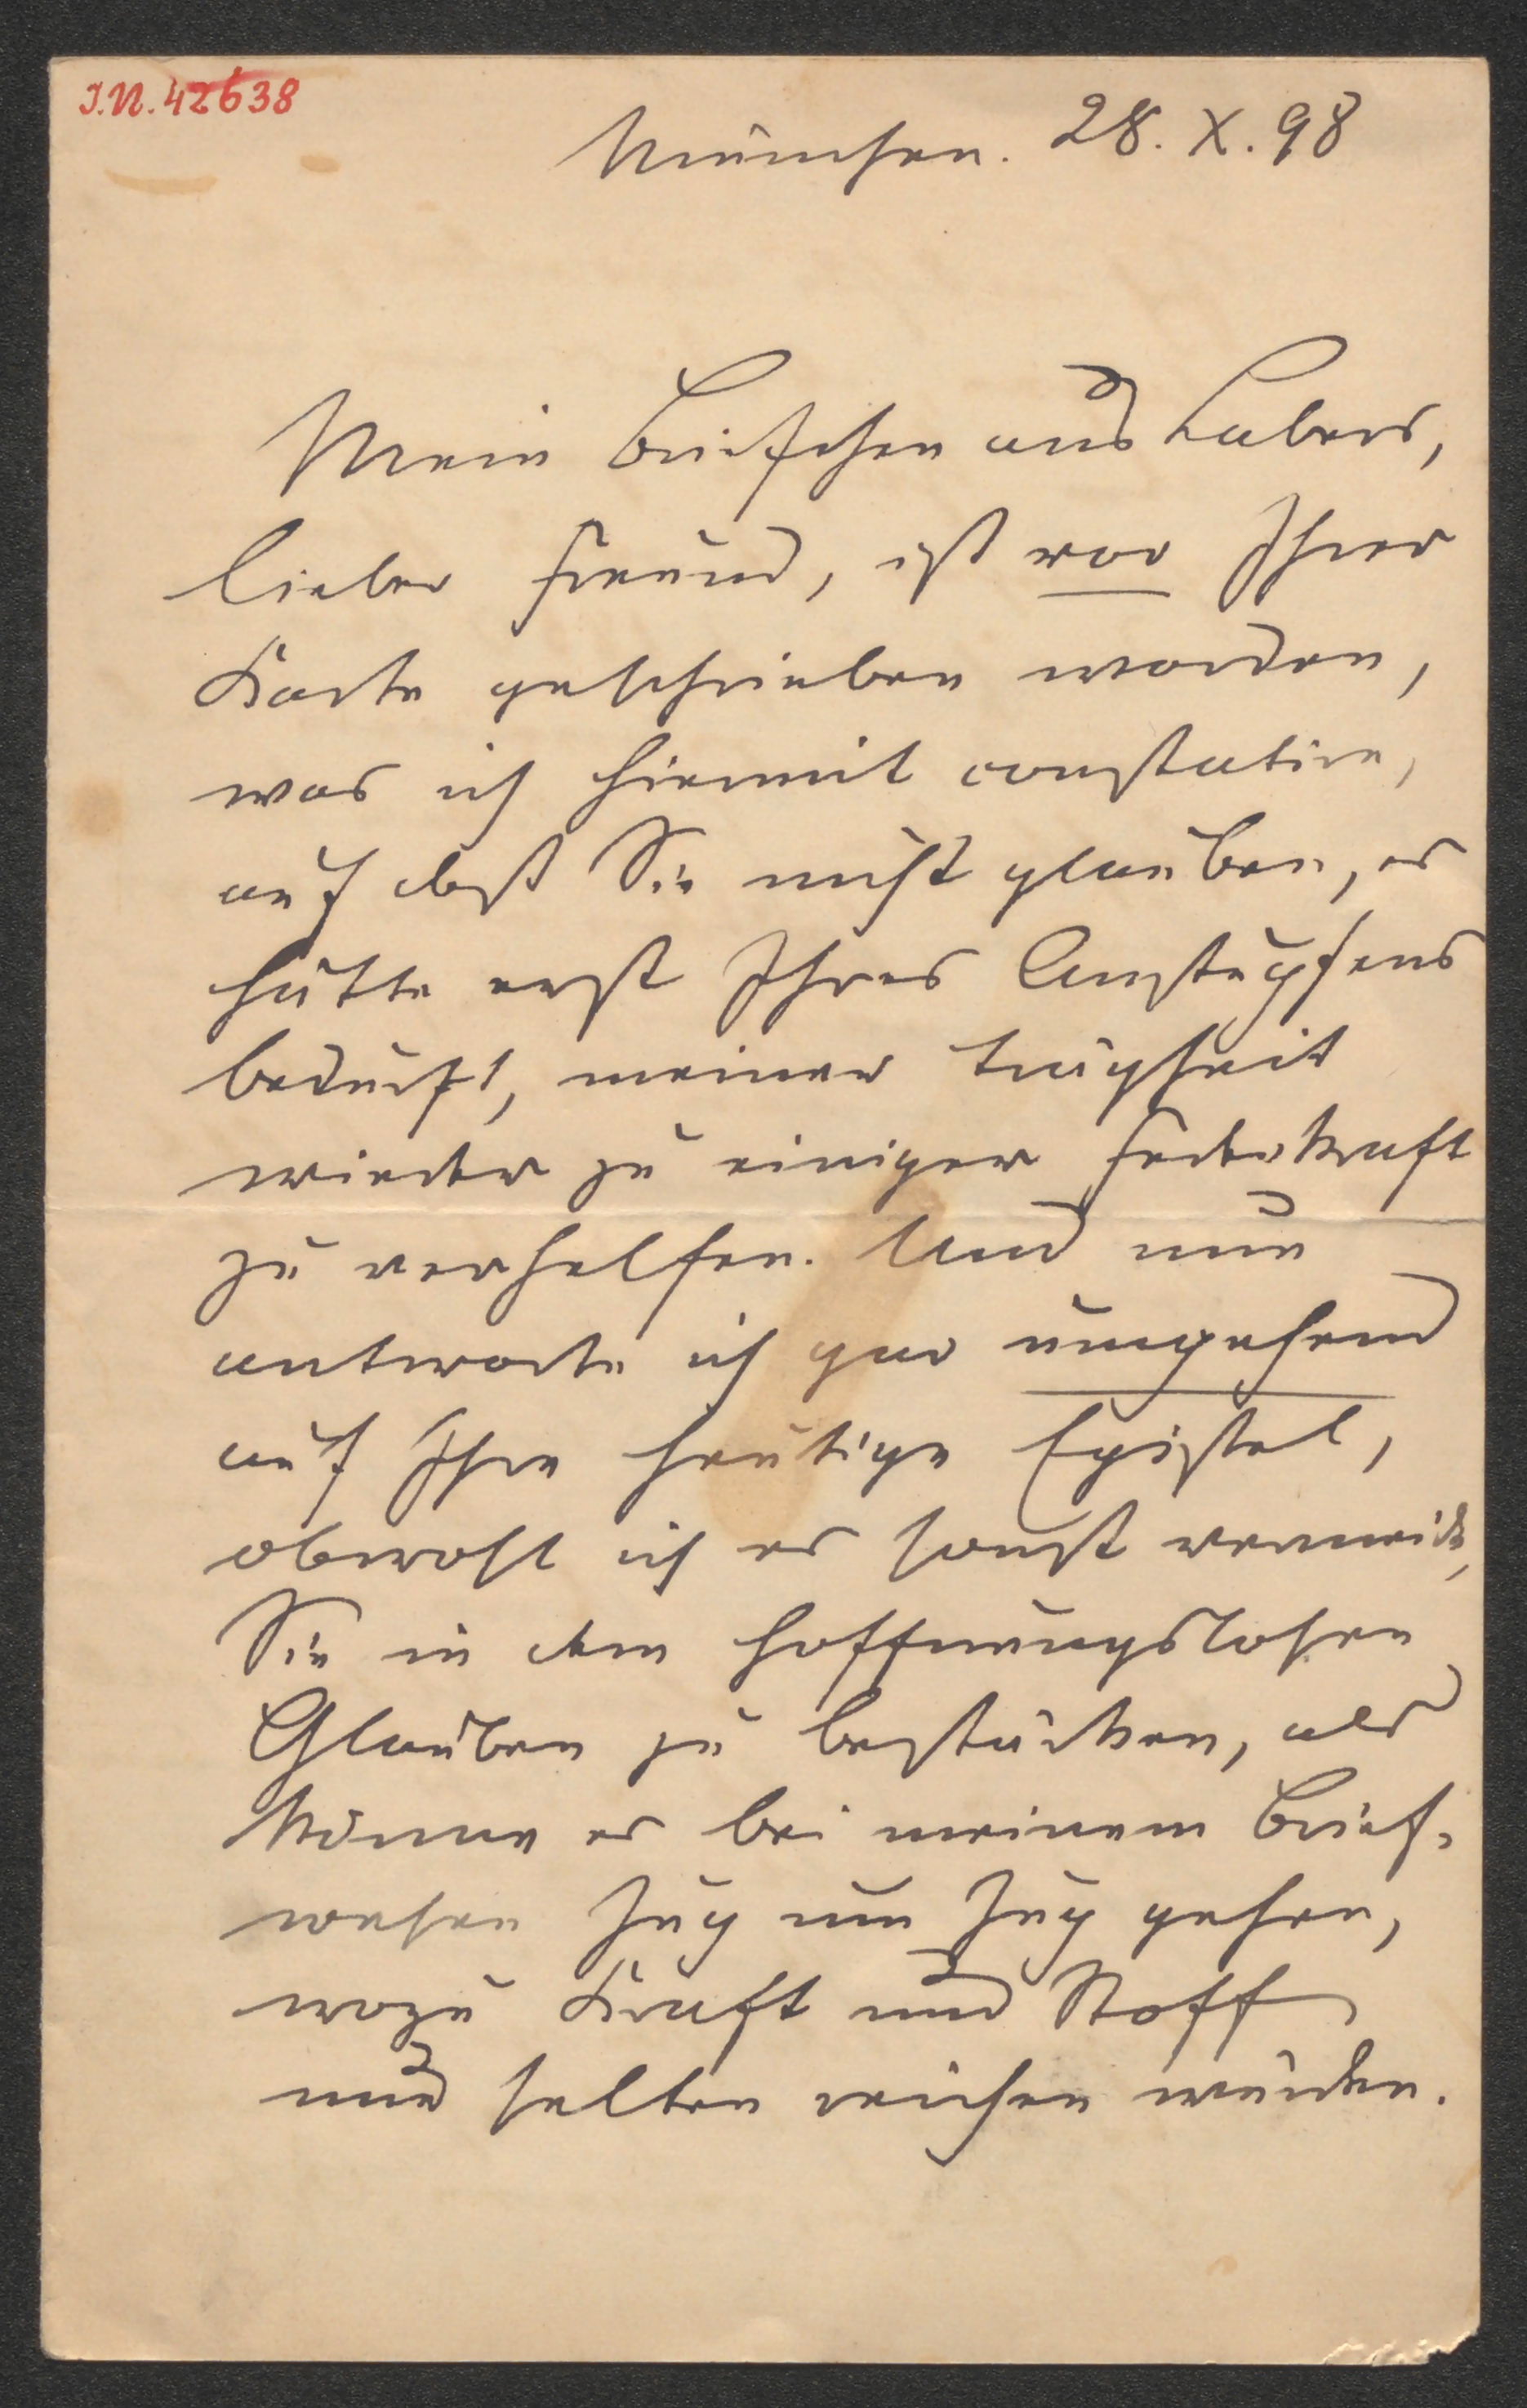 I.N. 42638
München. 28. X. 98
Mein Briefchen aus Labers,
lieber Freund, ist vor Ihrer
Karte geschrieben worden,
was ich hiermit constatire,
auf daß Sie nicht glauben, es
hätte erst Ihres Anstupfens
bedurft, meiner Trägheit
wieder zu einiger Federkraft
zu verhelfen. Und nun
antworte ich gar umgehend
auf Ihre heutige Epistel,
obwohl ich es sonst vermeide,
Sie in dem hoffnungslosen
Glauben zu bestärken, als
könne es bei meinem Brief-
wesen Zug um Zug gehen,
wozu Kraft und Stoff
nur selten reichen würden.